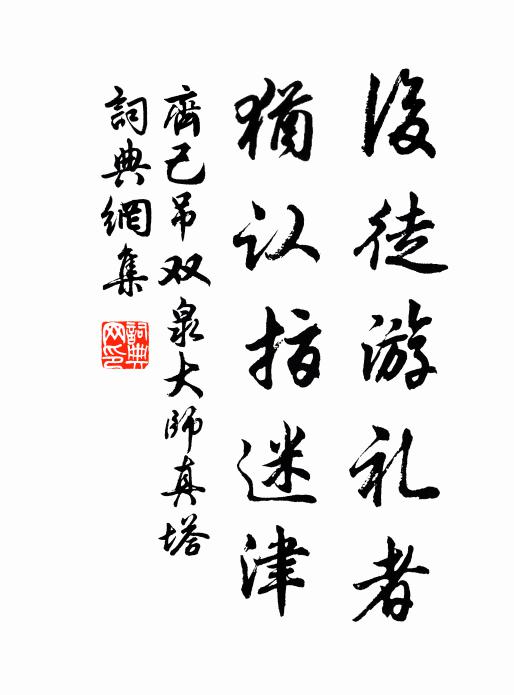 後徒游礼者
犹认指迷津
齊己吊双泉大師真塔
詞典網集
詞典網印